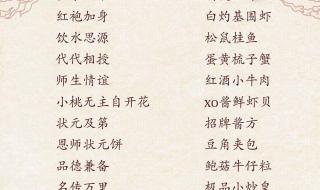 红袍加身
白灼基围虾
饮水思源
松鼠桂鱼
代代相授
蛋黄梳子蟹
师生情谊
红酒小牛肉
小桃无主自开花
xo酱鲜虾贝
状元及第
招牌酱方
恩师状元饼
豆角夹包
品德兼备
鲍菇牛仔粒
名传万里
极品小炒皇